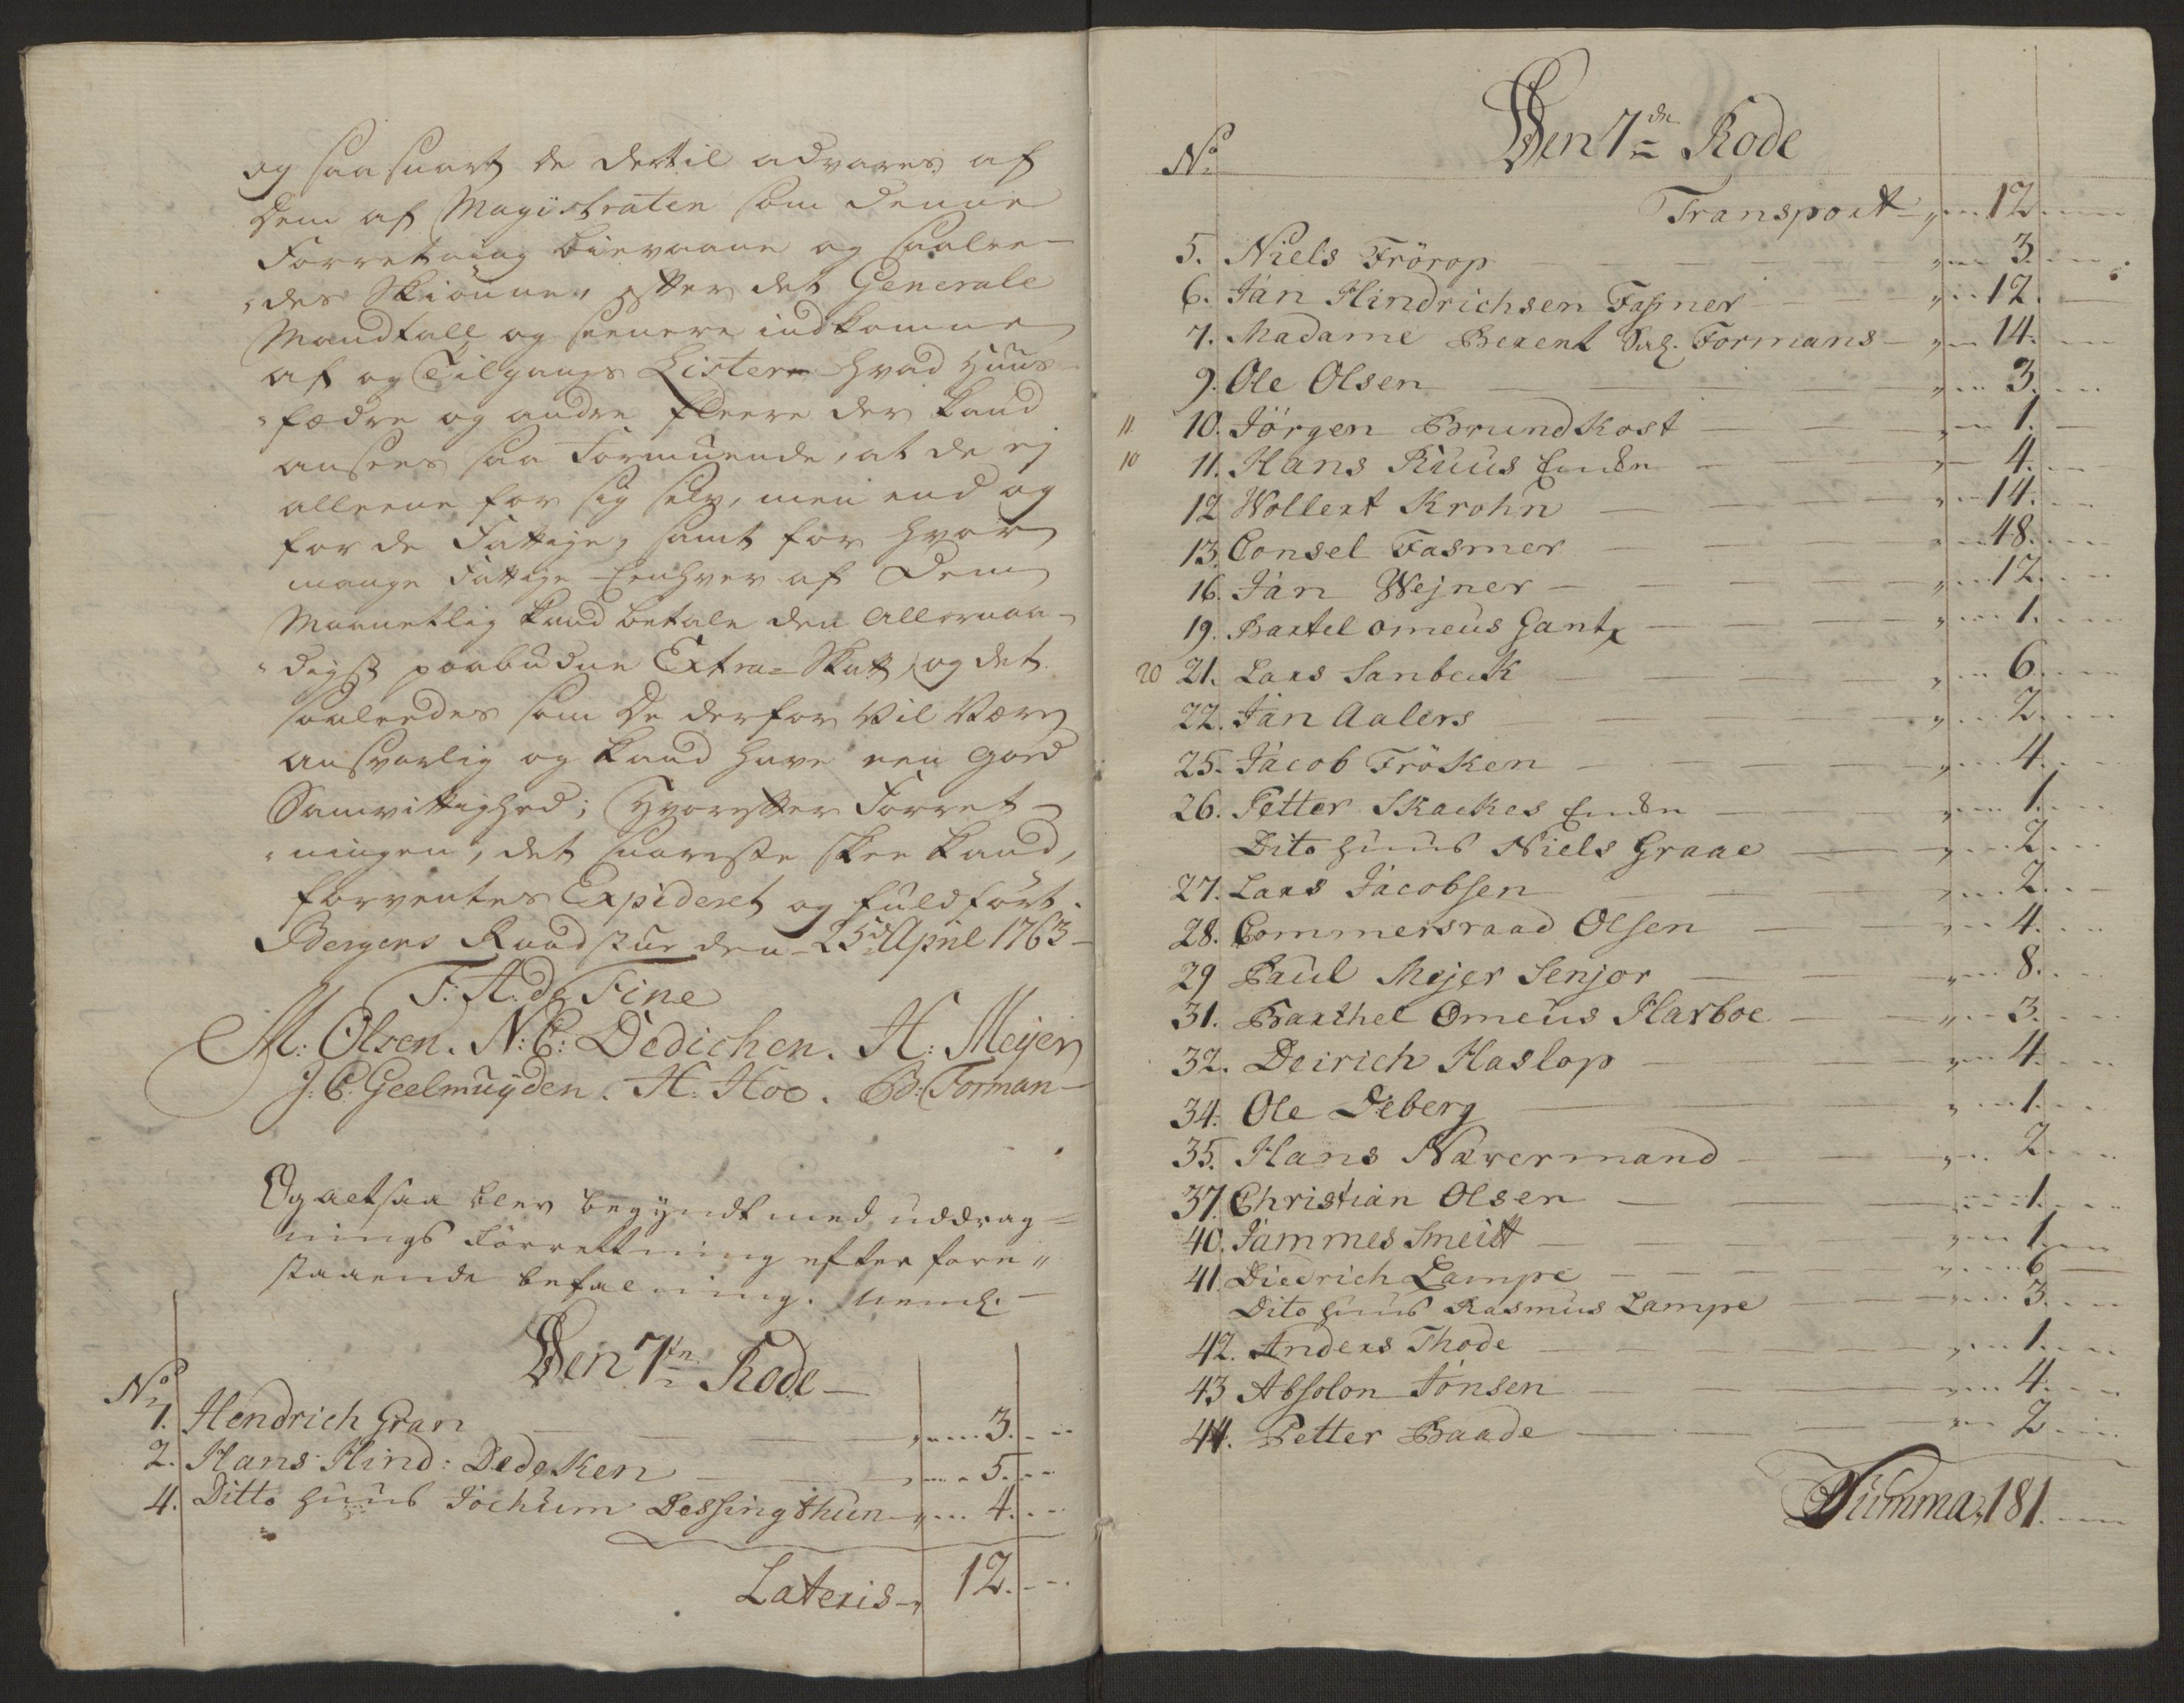 og saa snart de dertil advares af
Dem af Magistraten som denne
Forretning bievaane og saalee-
„des Skiønne, efter det Generale
Mandtall og seenere indkomne
af og Tilgangs Lister hvad Huus
„fædre og andre fleere der kand
ansees saa Formuende, at de ej
alleene for sig selv, men end og
for de Fattige, samt for hvor
mange Fattige Eenhver af Dem
Maanetlig kand betale den Allernaa-
„digst paabudne Extra-Skatt, og det
saaleedes som De derfor vil være
ansvarlig og kand have een god
Samvittighed; Hvorefter Forret-
„ningen, det snareste skee kand,
forventes Expideret og fuldført.
Bergens Raadstue den 25de April 1763
F: A: de Fine
M: Olsen. N: C: Dedichen. H: Meyer
J: C: Geelmuyden. H: Hoe. B: Forman
Og altsaa blev begyndt med uddrag=
nings Forrettning efter fore„
staaende befalning. neml:
Den 7de Rode
No
1. Hendrich Gran 3.
2. Hans Hind: Dedeken 5.
4. Ditto huus Jochum Dessingthun 4.
Lateris 12.
Den 7de Rode
No
Transport 12.
5. Niels Frörop 3.
6. Jan Hindrichsen Fasmer 12.
7. Madame Berent Sal: Formans 14.
9. Ole Olsen 3.
11 10. Jörgen Brundkost 1.
10 11. Hans Ruus Enke 4.
12 Wollert Krohn 14.
13. Consel Fasmer 48.
16. Jan Wejner 12.
19. Bartel omeus Gantz 1.
20 21. Lars Sanbeck 6.
22. Jan Aalers 2.
25. Jacob Fröken 4.
26. Petter Skackes Enke 1.
Dito huus Niels Graae 2.
27. Lars Jacobsen 2.
28. Commersraad Olsen 4.
29 Paul Mejer Senjor 8.
31. Barthel Omeus Harboe 3.
32. Deirich Haslop 4.
34. Ole Deberg 1.
35. Hans Navermand 2.
37. Christian Olsen 1.
40. Jammes Smeitt 1.
41. Diedrich Lampe 6
Dito huus Rasmus Lampe 3.
42. Anders Thode 1.
43 Absolon Jonsen 4.
44. Petter Baade 2
Summa 181.